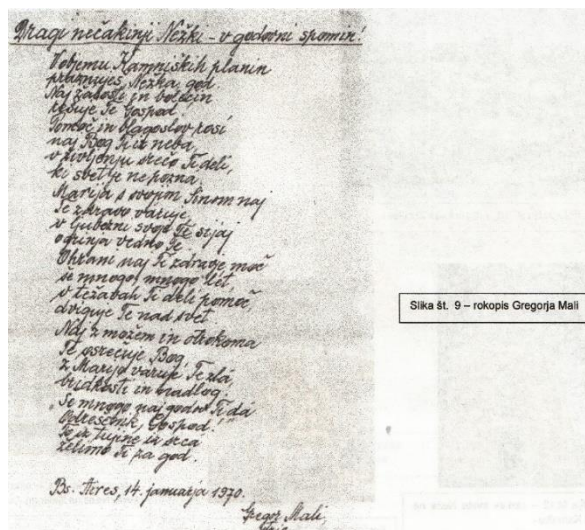 Dragi nečakinji Nežki - v godovni spomin!
V objemu Kamniških planin
praznuješ, Nežka, god
Naj žalosti in bolečin
rešuje Te Gospod.
Pomoč in blagoslov rosi
naj Bog Ti iz neba,
v življenju srečo Ti deli,
ki svet je ne pozna,
Marija s svojim Sinom naj
Te zdravo varuje,
v ljubezni svoji Te sijaj
vedno Te
Ohrani naj Ti zdravje, moč
še mnogo, mnogo let
v težavah Ti deli pomoč,
dviguje Te nad svet
Naj z možem in otrokoma
Te osrečuje Bog,
z Marijo varuje Te zla,
bridkosti in nadlog.
Še mnogo naj godov Ti dá
Odrešenik, Gospod!
Še iz tujine iz srca
želimo Ti za god.
Bs. Aires, 14. januarja 1970.
Gregor Mali,
Slika št. 9 – rokopis Gregorja Mali